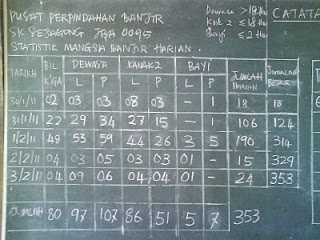 PUSAT PERPINDAHAN BANJIR
SK PEJAGONG JBA 0095
STATISTIK MANGSA BANJIR HARIAN.
Dewasa >18
Knk2 ≤18
Bayi ≤2
CATATA
TARIKH BIL K'GA DEWASA L P KANAK2 L P BAYI L P JUMLAH JUMLAH BESAR
30/1/11 02 03 03 08 03 - 1 18 18
31/1/11 22 29 34 27 15 - 1 106 124
1/2/11 48 53 59 44 26 3 5 190 314
2/2/11 04 03 05 03 03 01 - 15 329
3/2/11 04 09 06 04 04 01 - 24 353
JUMLAH 80 97 107 86 51 5 7 353